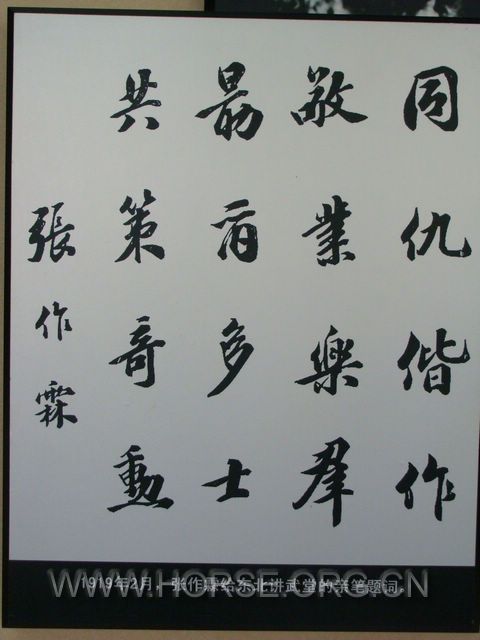 同仇偕作
敬業樂群
勗爾多士
共策奇勳
張作霖
1919年2月，张作霖给东北讲武堂的亲笔题词。
WWW.HORSE.ORG.CN